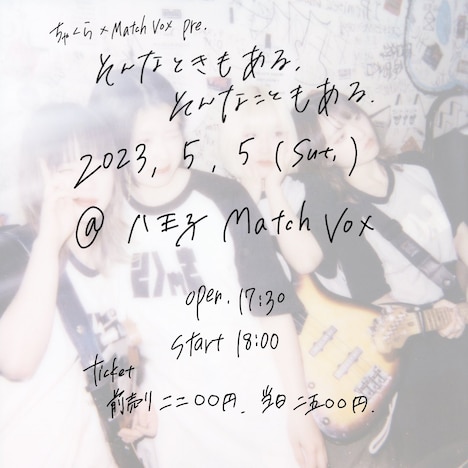 ちゃくら × Match Vox pre.
そんなときもある、
そんなこともある.
2023, 5, 5 (Sut,)
@ 八王子 Match Vox
open. 17:30
start 18:00
ticket
前売り 二二〇〇円. 当日 二五〇〇円.